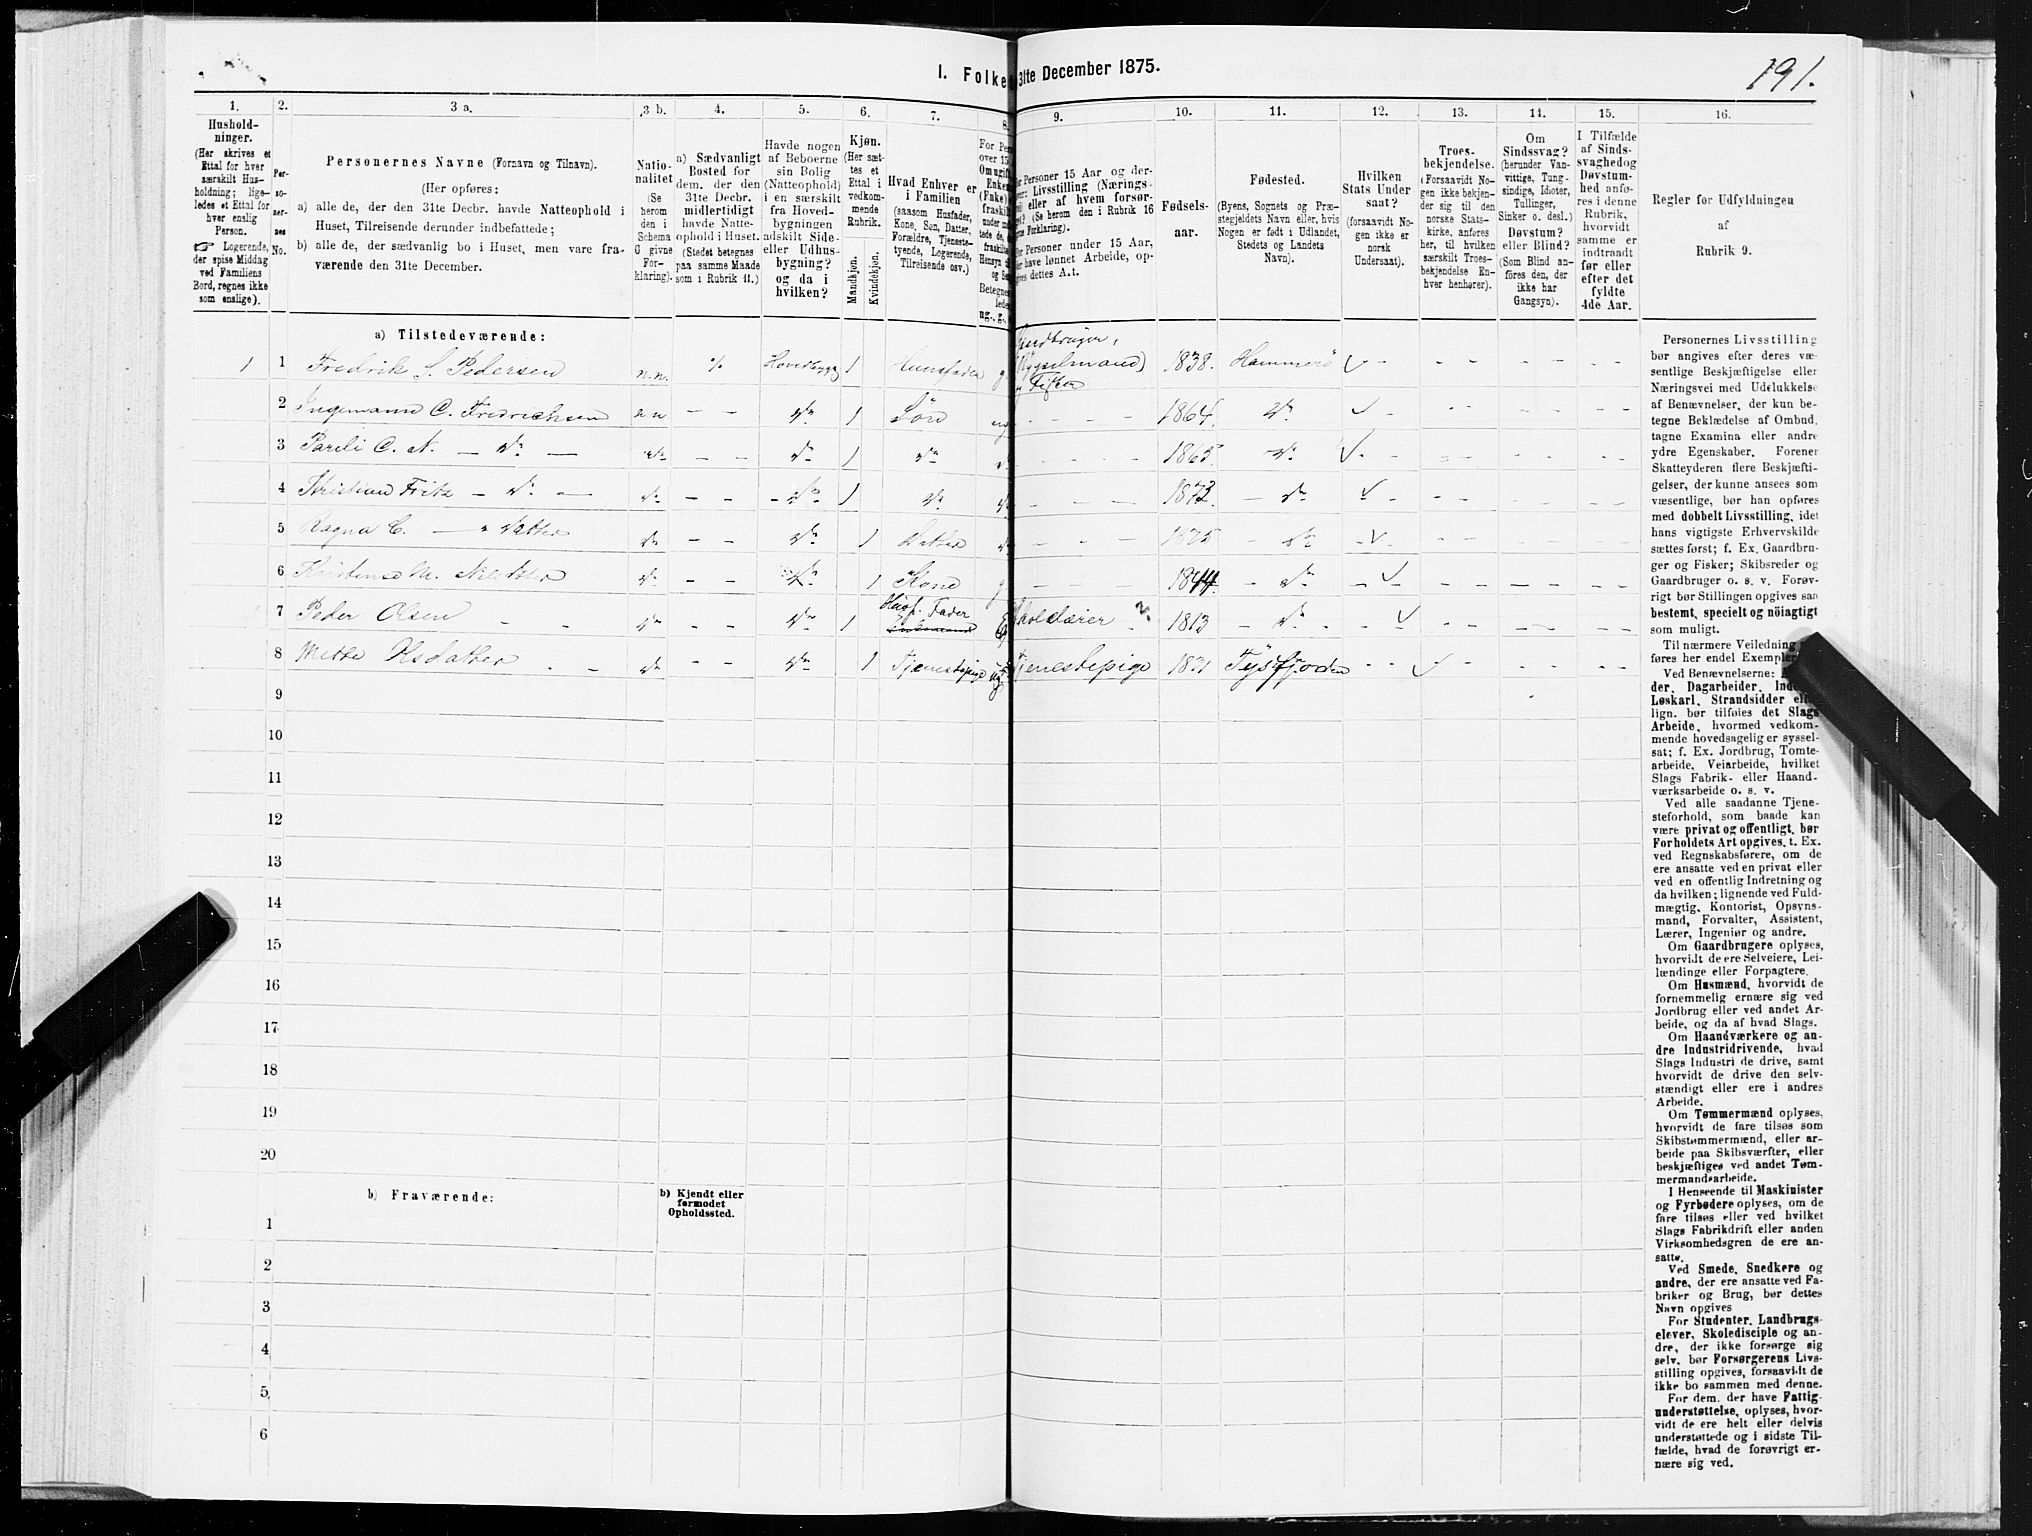 191.
I. Folke 31te December 1875.
1.
2.
3 a.
3 b.
4.
5.
6.
7.
8.
9.
10.
11.
12.
13.
14.
15.
16.
Hushold-
ninger.
(Her skrives et
Ettal for hver
særskilt Hus-
holdning; lige-
ledes et Ettal for
hver enslig
Person.
☞ Logerende,
der spise Middag
ved Familiens
Bord, regnes ikke
som enslige).
Per-
so-
ner-
nes
No.
Personernes Navne (Fornavn og Tilnavn).
(Her opføres:
a) alle de, der den 31te Decbr. havde Natteophold i
Huset, Tilreisende derunder indbefattede;
b) alle de, der sædvanlig bo i Huset, men vare fra-
værende den 31te December.
Natio-
nalitet
(Se
herom
den i
Schema
0 givne
For-
klaring).
a) Sædvanligt
Bosted for
dem, der den
31te Decbr.
midlertidigt
havde Natte-
ophold i Huset.
(Stedet betegnes
paa samme Maade
som i Rubrik 11.)
Havde nogen
af Beboerne
sin Bolig
(Natteophold)
i en særskilt
fra Hoved-
bygningen
adskilt Side-
eller Udhus-
bygning?
og da i
hvilken?
Kjøn.
(Her sæt-
tes et
Ettal i
vedkom-
mende
Rubrik.
Mandkjøn.
Kvindekjøn.
Hvad Enhver er
i Familien
(saasom Husfader,
Kone, Søn, Datter,
Forældre, Tjeneste-
tyende, Logerende,
Tilreisende osv.)
For Pe
over 15
Om ugift
Enken
(Fnke)
fraskilt
under
tede de,
fraskilte
Hensyn ti
og Se
Betegnes
lede
ug., g.,
or Personer 15 Aar og der-
er: Livsstilling (Nærings-
vei) eller af hvem forsør-
get? (Se herom den i Rubrik 16
vne Forklaring).
or Personer under 15 Aar,
er have lønnet Arbeide, op-
gives dettes A.t.
Fødsels-
aar.
Fødested.
(Byens, Sognets og Præ-
stegjeldets Navn eller, hvis
Nogen er født i Udlandet,
Stedets og Landets
Navn).
Hvilken
Stats Under-
saat?
(forsaavidt No-
gen ikke er
norsk
Undersaat).
Troes-
bekjendelse.
(Forsaavidt No-
gen ikke bekjen-
der sig til den
norske Stats-
kirke, anføres
her, til hvilken
særskilt Troes-
bekjendelse En-
hver henhører).
Om
Sindssvag?
(herunder Van-
vittige, Tung-
sindige, Idioter,
Tullinger,
Sinker o. desl.)
Døvstum?
eller Blind?
(Som Blind an-
føres den, der
ikke har
Gangsyn).
I Tilfælde
af Sinds-
svaghed og
Døvstum-
hed anfø-
res i denne
Rubrik,
hvorvidt
samme er
indtraadt
før eller
efter det
fyldte
4de Aar.
Regler for Udfyldningen
af
Rubrik 9.
a) Tilstedeværende:
1 1 Fredrik S. Pedersen n.n. % Hovedbygg 1 Huusfader g. Gaardbruger, (Bygselmand) og Fisker 1838. Hammerø
2 Ingemann C. Fredrichsen n n — — Do 1 Søn ug 1864. Do
3 Pareli C. N. — Do — Do — — Do 1 Do 1865. Do
4 Kristian Fritz — Do — Do — — Do 1 Do 1873. — Do
5 Ragna C. — " Datter Do — — Do 1 Datter 1875 — Do
6 Kristense M. Nilsdtter Do — — Do 1 Kone g 1844. — Do
7 Peder Olsen Do — — Do 1 Husf. Fader E Føderaad 1813 — Do
8 Mette Olsdatter Do — — Do 1 Tjenestepige ug. Tjenestepige 1831 Tysfjorden
9
10
11
12
13
14
15
16
17
18
19
20
b) Fraværende:
b) Kjendt eller
formodet
Opholdssted.
1
2
3
4
5
6
Personernes Livsstilling
bør angives efter deres væ-
sentlige Beskjæftigelse eller
Næringsvei med Udelukkelse
af Benævnelser, der kun be-
tegne Beklædelse af Ombud,
tagne Examina eller andre
ydre Egenskaber. Forener
Skatteyderen flere Beskjæfti-
gelser, der kunne ansees som
væsentlige, bør han opføres
med dobbelt Livsstilling, idet
hans vigtigste Erhvervskilde
sættes først; f. Ex. Gaardbru-
ger og Fisker; Skibsreder og
Gaardbruger o. s. v. Forøv-
rigt bør Stillingen opgives saa
bestemt, specielt og nöiagtigt
som muligt.
Til nærmere Veiledning
føres her endel Exempler
Ved Benævnelserne:
der, Dagarbeider, Inder
Løskarl, Strandsidder ell
lign. bør tilføies det Slags
Arbeide, hvormed vedkom-
mende hovedsagelig er syssel-
sat; f. Ex. Jordbrug, Tomte-
arbeide, Veiarbeide, hvilket
Slags Fabrik- eller Haand-
værksarbeide o. s. v.
Ved alle saadanne Tjene-
steforhold, som baade kan
være privat og offentligt, bør
Forholdets Art opgives, t. Ex.
ved Regnskabsførere, om de
ere ansatte ved en privat eller
ved en offentlig Indretning og
da hvilken; lignende ved Fuld-
mægtig, Kontorist, Opsyns-
mand, Forvalter, Assistent,
Lærer, Ingeniør og andre.
Om Gaardbrugere oplyses,
hvorvidt de ere Selveiere, Lei-
lændinge eller Forpagtere.
Om Husmænd, hvorvidt de
fornemmelig ernære sig ved
Jordbrug eller ved andet Ar-
beide, og da af hvad Slags.
Om Haandværkere og an-
dre Industridrivende, hvad
Slags Industri de drive, samt
hvorvidt de drive den selv-
stændigt eller ere i andres
Arbeide.
Om Tømmermænd oplyses,
hvorvidt de fare tilsøs som
Skibstømmermænd, eller ar-
beide paa Skibsværfter, eller
beskjæftiges ved andet Tøm-
mermandsarbeide.
I Henseende til Maskinister
og Fyrbødere oplyses, om de
fare tilsøs eller ved hvilket
Slags Fabrikdrift eller anden
Virksomhedsgren de ere an-
satte.
Ved Smede, Snedkere og
andre, der ere ansatte ved Fa-
briker og Brug, bør dettes
Navn opgives
For Studenter, Landbrugs-
elever, Skoledisciple og an-
dre, der ikke forsørge sig
selv, bør Forsørgerens Livs-
stilling opgives, forsaavidt de
ikke bo sammen med denne.
For dem, der have Fattig-
understøttelse, oplyses, hvor-
vidt de ere helt eller delvis
understøttede og i sidste Til-
fælde, hvad de forøvrigt er-
nære sig ved.